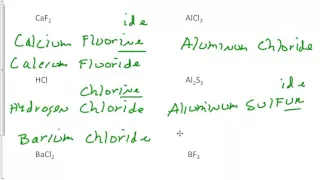 CaF2
ide
AlCl3
Calcium Fluorine
Calcium Fluoride
Aluminum Chloride
HCl
Chlorine
Hydrogen Chloride
Al2S3
ide
Aluminum Sulfur
Barium Chloride
BaCl2
BF3